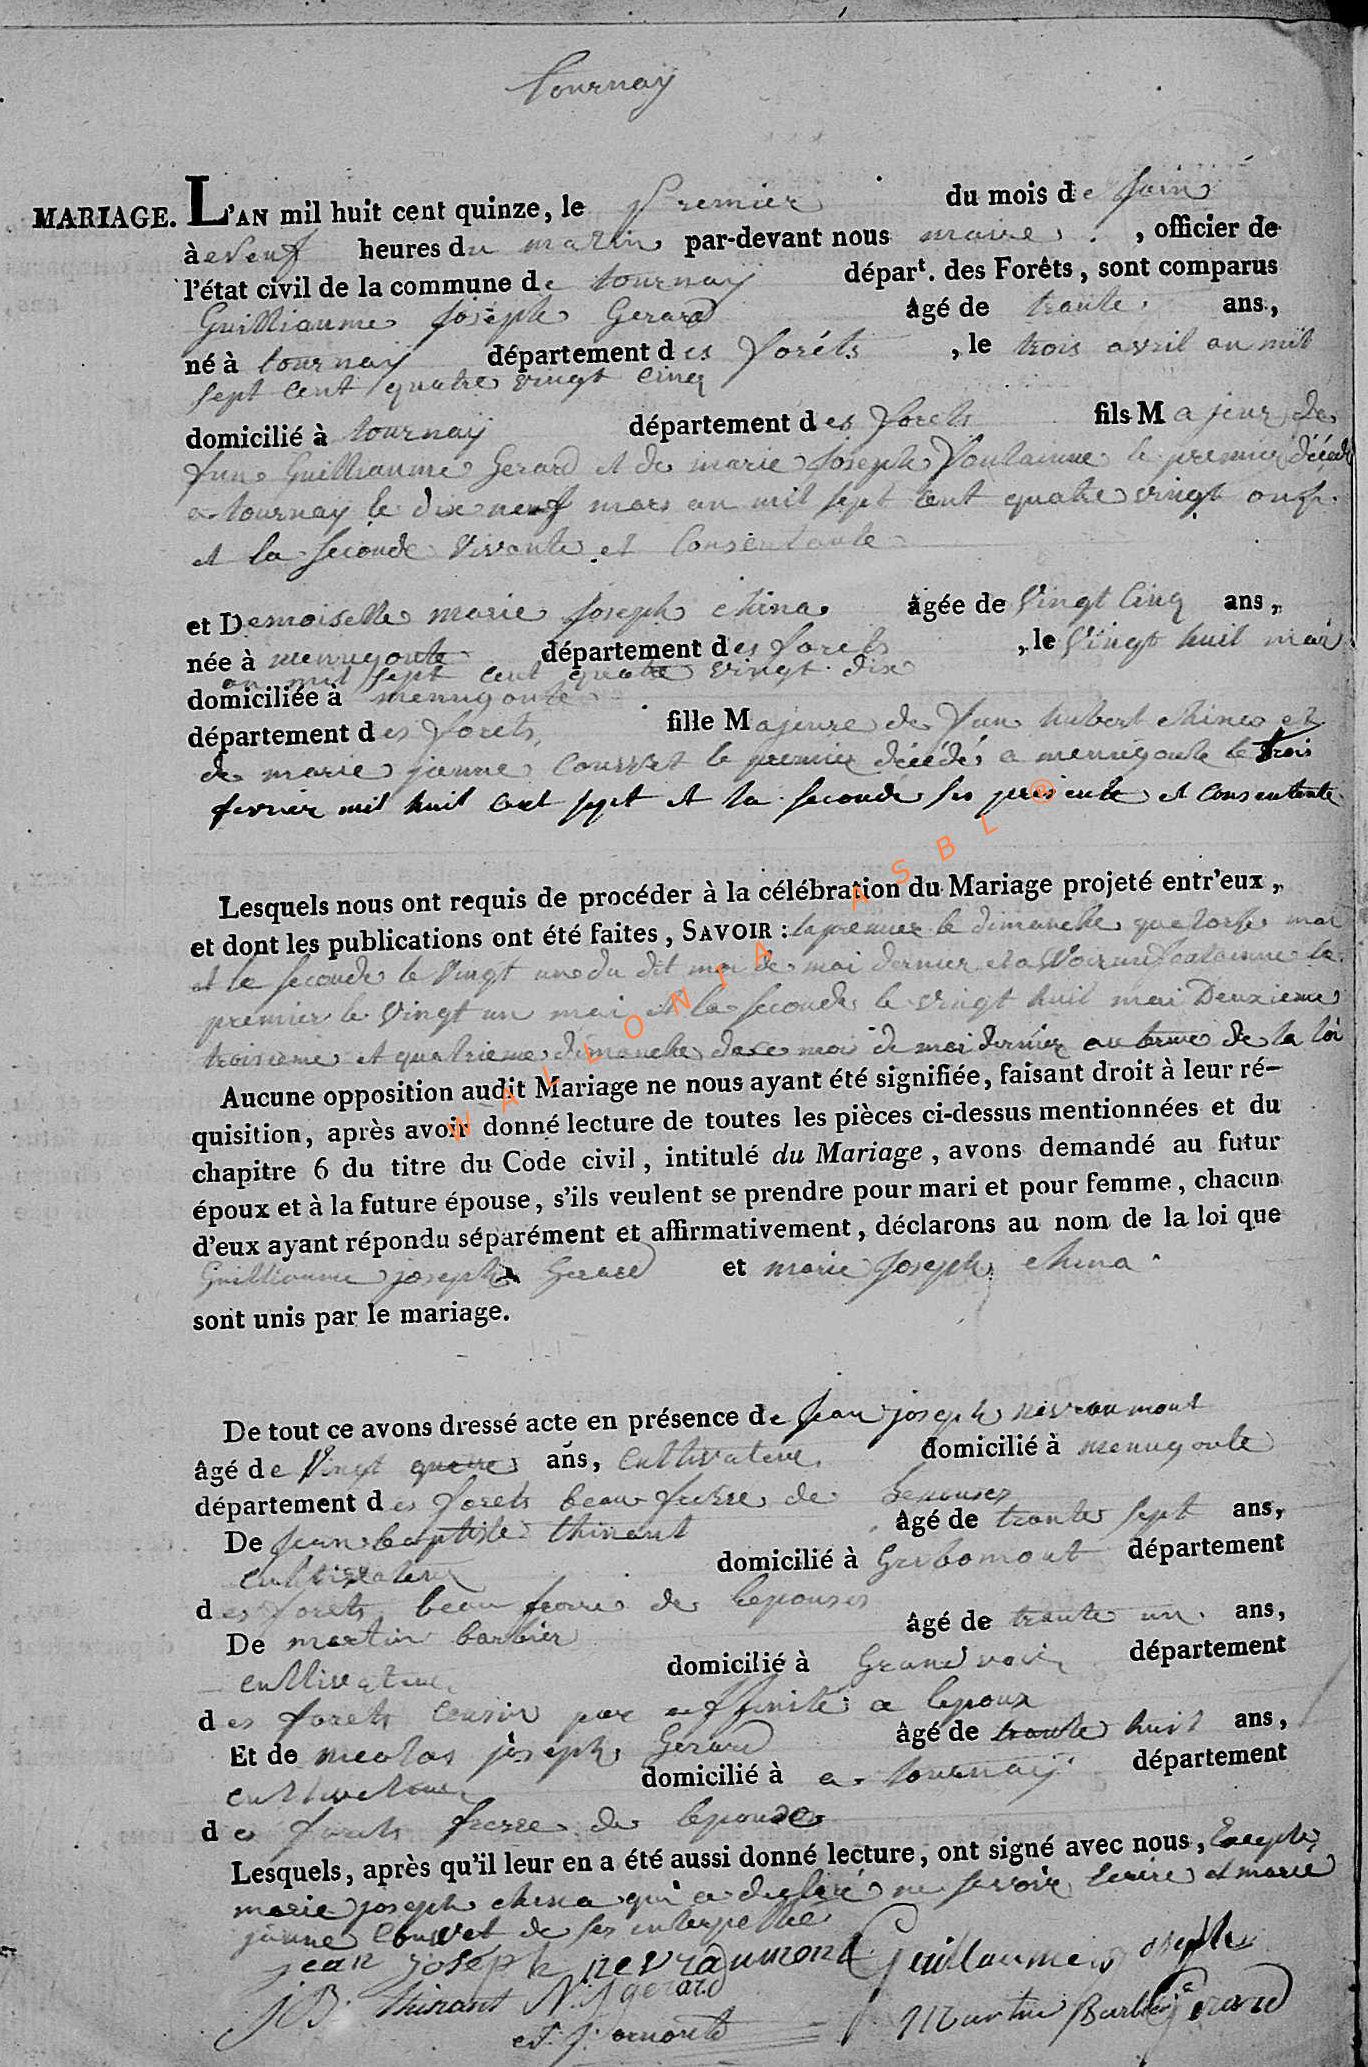 tournay
MARIAGE. L'AN mil huit cent quinze, le Premier du mois de Juin
à neuf heures du matin par-devant nous maire, officier de
l'état civil de la commune de tournay départ. des Forêts, sont comparus
Guilliaume Joseph Gerard âgé de trante ans,
né à tournay département des foréts, le trois avril an mil
sept cent quatre vingt cinq
domicilié à tournay département des forets fils Majeur de
Guilliaume Gerard et de marie Joseph le premier décédé
a tournay le dix neuf mars an mil sept cent quatre vingt onze
et la seconde vivante et Consentante
et Demoiselle marie Joseph china âgée de Vingt Cinq ans,
née à menugoute département des forets, le Vingt huit mai
an mil sept cent quatre vingt dix
domiciliée à menugoute
département des forets, fille Majeure de hubert chine et
de marie jeanne Couvet le premier décédé a menugoute le trois
fevrier mil huit cent sept et la seconde presente et Consentente
Lesquels nous ont requis de procéder à la célébration du Mariage projeté entr'eux,
et dont les publications ont été faites, SAVOIR : la premier le dimanche quatorse mai
et la seconde le Vingt un du dit moi de mai dernier et a la
premier le Vingt un mai et la seconde le vingt huit mai Deuxieme
troisieme et quatrieme dimanche de ce moi de mai dernier au terme de la loi
Aucune opposition audit Mariage ne nous ayant été signifiée, faisant droit à leur ré-
quisition, après avoir donné lecture de toutes les pièces ci-dessus mentionnées et du
chapitre 6 du titre du Code civil, intitulé du Mariage, avons demandé au futur
époux et à la future épouse, s'ils veulent se prendre pour mari et pour femme, chacun
d'eux ayant répondu séparément et affirmativement, déclarons au nom de la loi que
Guilliaume joseph Gerard et marie Joseph china
sont unis par le mariage.
De tout ce avons dressé acte en présence de Jean joseph nevraumont
âgé de Vingt quatre ans, Cultivateur domicilié à menugoute
département des forets beau frere de
De Jean baptiste thirant âgé de trante sept ans,
cultivateur domicilié à Gribomont département
des forets beau frere de
De martin barbier âgé de trante un ans,
cultivateur domicilié à Grandvoir département
des forets Cousin par affinité a lepoux
Et de nicolas joseph Gerard âgé de trante huit ans,
cultivateur domicilié à a tournay département
des forets frere de
Lesquels, après qu'il leur en a été aussi donné lecture, ont signé avec nous, Excepté
marie joseph china qui a declaré ne savoir Ecrire et marie
jeanne Couvet de ses interpellée
jean joseph nevraumont Guillaume joseph
J B thirant N J gerard Martin Barbier Gerard
WALLONIA ASBL ®